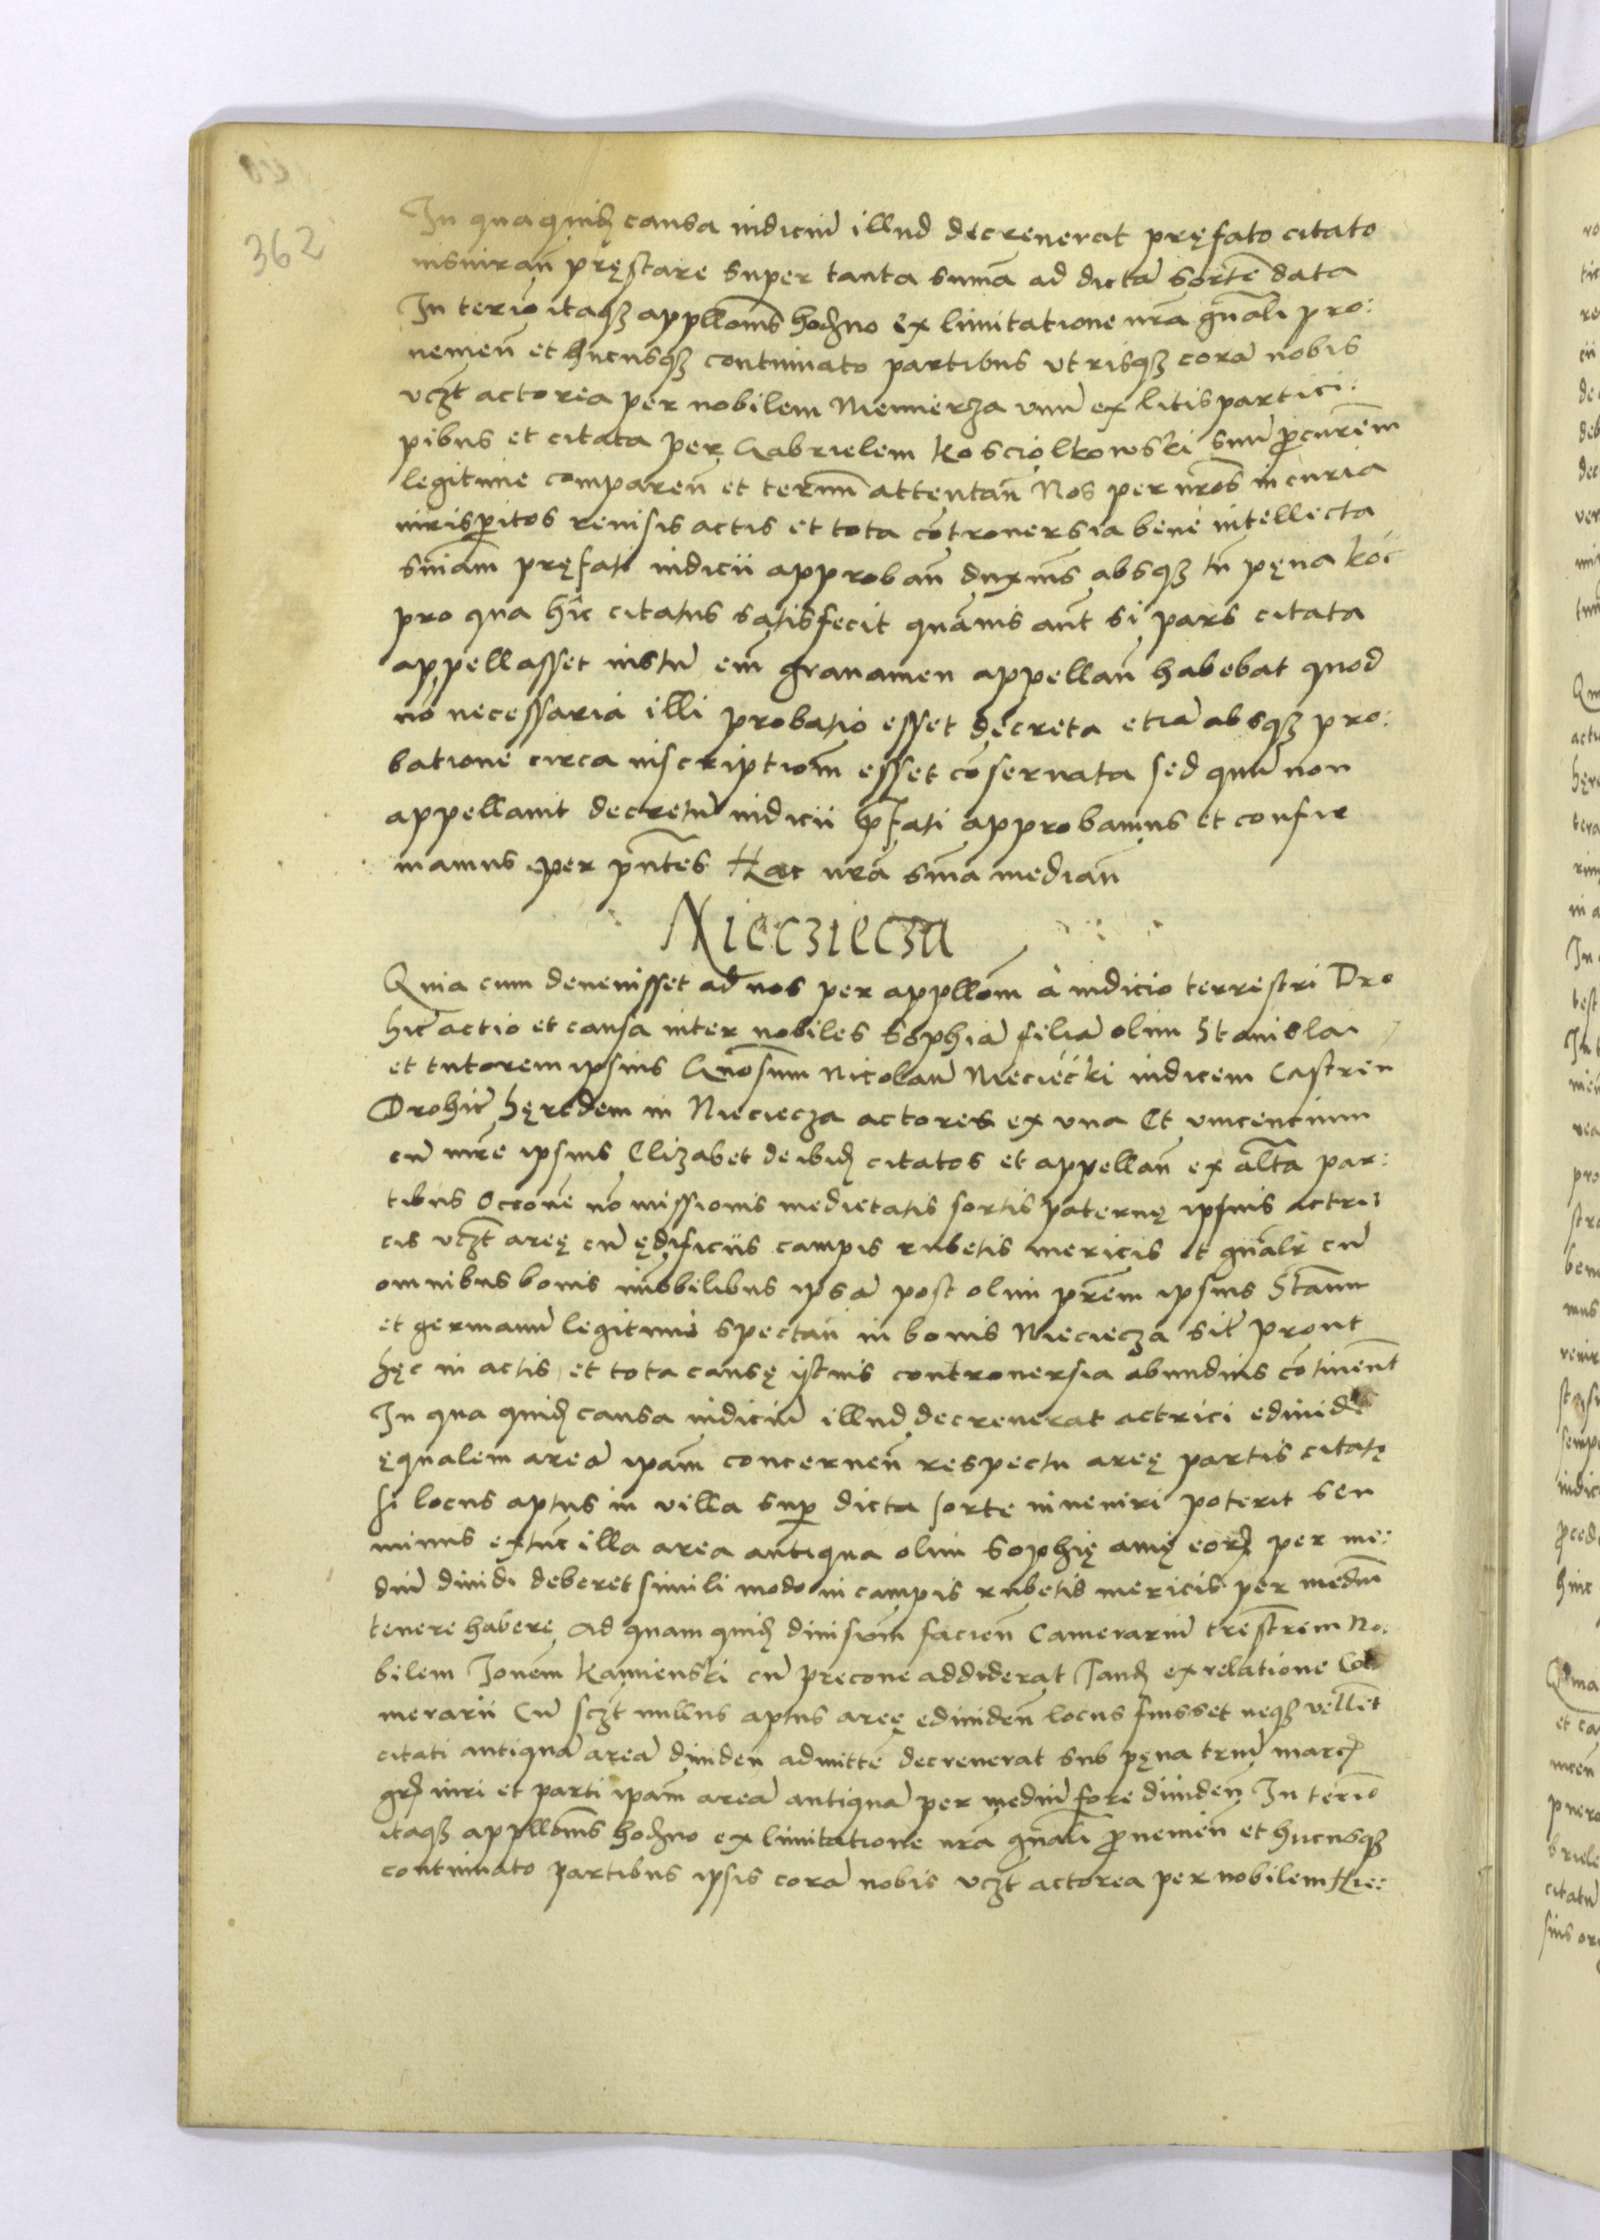 362
In qua quidꝫ causa iudiciu͂ illud decreuerat pręfato citato
iusiuran͂ pręstare super tanta summa ad dicta͂ sorte͂ data
In ter͂io itaqꝫ appllonis hodꝫno ex limitatione nr͂a gn͂ali pro:
uenien͂ et hucusqꝫ continuato partibus utrisqꝫ cora͂ nobis
vcꝫt actorea per nobilem Niemierza vnu͂ ex litis partici:
pibus et citata per Gabrielem Kosciolkowski suu͂ ꝓcur͂em
legitime comparen͂ et term͂ attentan͂ Nos per nr͂os in curia
iurisperitos reuisis actis et tota co͂trouersia bene intellecta
sn͂iam pręfati iudicii approban͂ duxim͂s absqꝫ tn͂ pęna koc͂
pro qua hic citatus satisfecit qua͂uis aut͂ si pars citata
appellasset iustu͂ eni͂ grauamen appellan͂ habebat quod
no͂ necessaria illi probatio esset decreta etia͂ absqꝫ pro:
batione circa inscription͂ esset co͂seruata sed quu͂ non
appellauit decretu͂ iudicii p͂fati approbamus et confir
mamus per pn͂tes Hac nr͂a sn͂ia median͂
Niecziecza
Quia cum deuenisset ad nos per appllom͂ à iudicio terrestri Dro
hic͂ actio et causa inter nobiles Sophia͂ filia͂ olim Stanislai
et tutorem ipsius Gn͂osum Nicolau͂ Niecieċki iudicem Castren
Drohic͂ hęredem in Nieciecza actores ex vna Et vincencium
cu͂ mr͂e ipsius Elizabet de ibidꝫ citatos et appellan͂ ex alt͂a par:
tibus Occo͂ne no͂ missionis medietatis sortis paternę ipsius actri
cis vcꝫt areę cu͂ ędificiis campis rubetis mericis et gn͂alr͂ cu͂
omnibus bonis im͂obilibus ipsa͂ post olim pr͂em ipsius Stan͂m
et germanu͂ legitime spectan͂ in bonis Nieciecza sit͂ prout
hęc in actis et tota causę istius controuersia abundius co͂tinent͂
In qua quidꝫ causa iudiciu͂ illud decreuerat actrici ediuidi
ęqualem area͂ ipam͂ concernen͂ respectu areę partis citatę
si locus aptus in villa sup͂ dicta sorte inueniri poterit seu
minus extunc illa area antiqua olim Sophię amię eorꝫ per me:
diu͂ diuidi deberet simili modo in campis rubetis mericis per mediu͂
tenere habere Ad quam quidꝫ diuisiom͂ facien͂ Camerariu͂ trestr͂em No:
bilem Jon͂em Kamienski cu͂ precone addiderat Tandꝫ ex relatione Ca
merarii Cu͂ scꝫt nullus aptus areę ediuiden͂ locus fuisset neqꝫ vellet͂
citati antiqua͂ area͂ diuiden͂ admitte͂ decreuerat sub pęna triu͂ marcꝫ
grꝫ iuri et parti ipam͂ area͂ antiqua͂ per mediu͂ fore diuiden͂ In ter͂io
itaqꝫ appllonis hodꝫno ex limitatione nr͂a gn͂ali ꝓuenien͂ et hucusqꝫ
continuato partibus ipsis cora͂ nobis vcꝫt actorea per nobilem Hie: